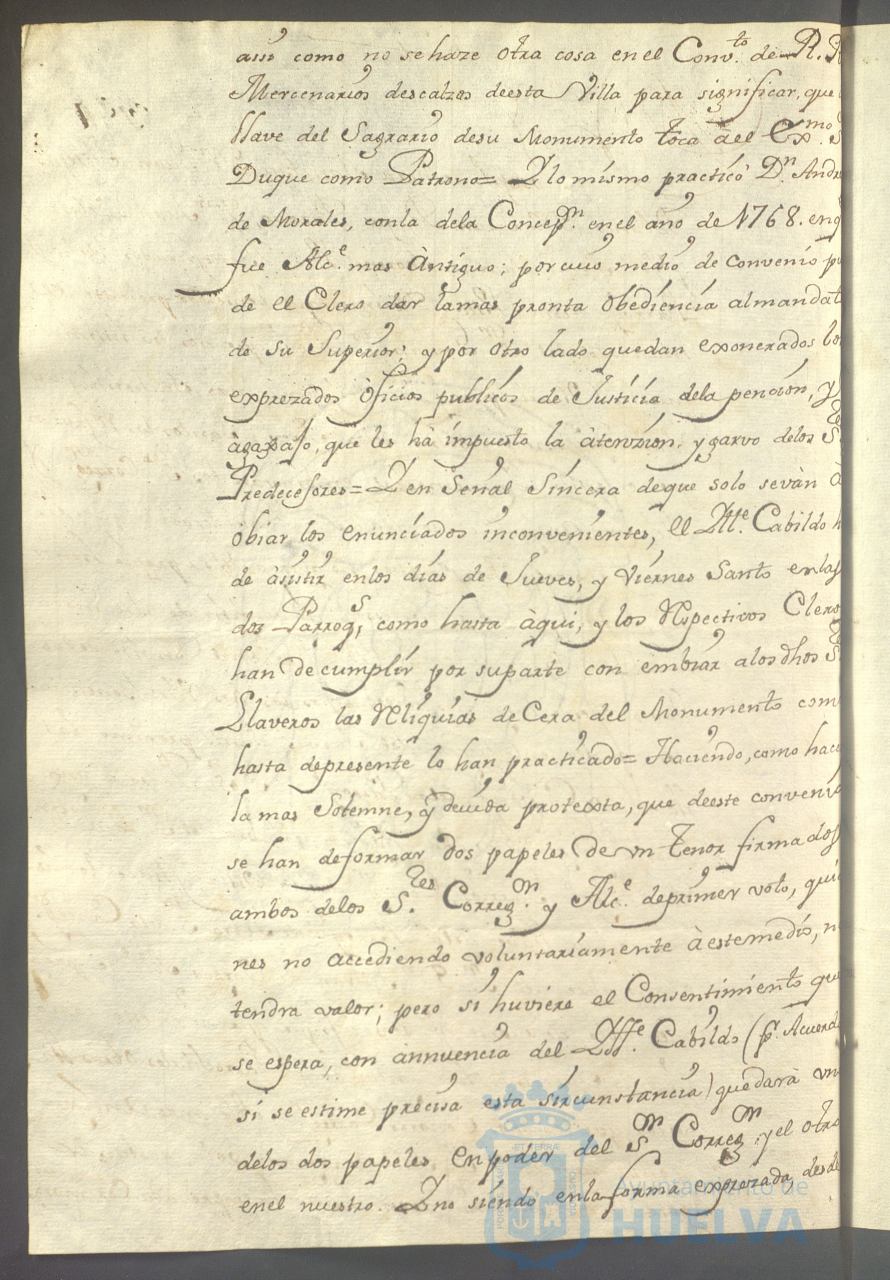 assi como no se haze otra cosa en el Conv.to de R. R
Mercenarios descalzos deesta Villa para significar, que
llave del Sagrario desu Monumento toca àel Ex.mo S
Duque como Patrono= Y lo mismo practicò Dn. Andr
de Morales, conla dela Concepn. en el año de 1768. enq
fue Alce. mas Àntiguo; por cuio medio de convenio pu
de el Clero dar lamas pronta obediencia almandat
de su Superior; y por otro lado quedan exonerados lo
exprezados òficios publicos de Justicia dela pencion, y
àgaxajo, que les hà impuesto la àtenzion, y garvo delos S.res
Predecesores= Y en Señal Sincera deque solo sevàn à
obiar los enunciados inconvenientes, el Ille. Cabildo h
de àsistir enlos dias de Jueves, y Viernes Santo enlas
dos Parroqs, como hasta àqui, y los Respectivos Clero
han de cumplir por suparte con embiar alos dhos S.res
Llaveros las Reliquias de Cera del Monumento com
hasta depresente lo han practicado= Haciendo, como hace
la mas Solemne, y devida protexta, que deeste conveni
se han deformar dos papeles de vn tenor firmados
ambos delos S.res Corregn. y Alce. deprimer voto, quie
nes no accediendo voluntariamente à estemedio, no
tendra valor; pero si huviere el Consentimiento que
se espera, con annuencia del Ille. Cabildo (pr. Acuerdo
si se estime precisa esta sircunstancia) quedarà vn
delos dos papeles en poder del Sn. Corregn. y el otro
enel nuestro. Y no siendo enla forma exprezada, desde
Ayuntamiento de
HUELVA